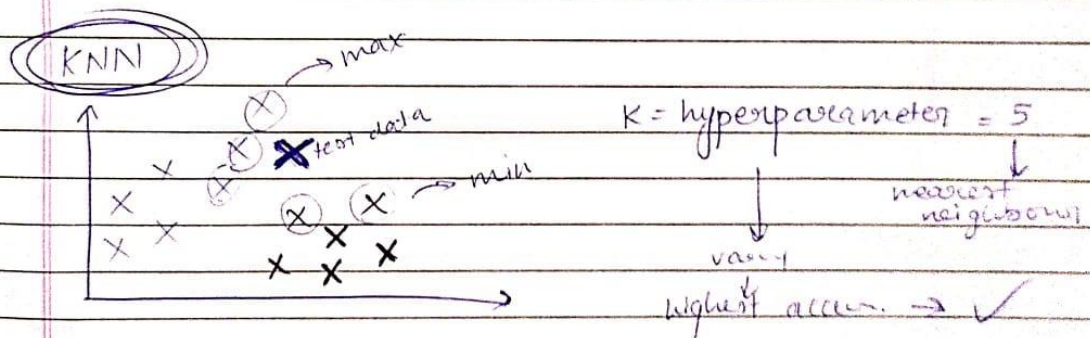 KNN
max
test data
min
K = hyperparameter = 5
nearest
neighbours
vary
highest accu.